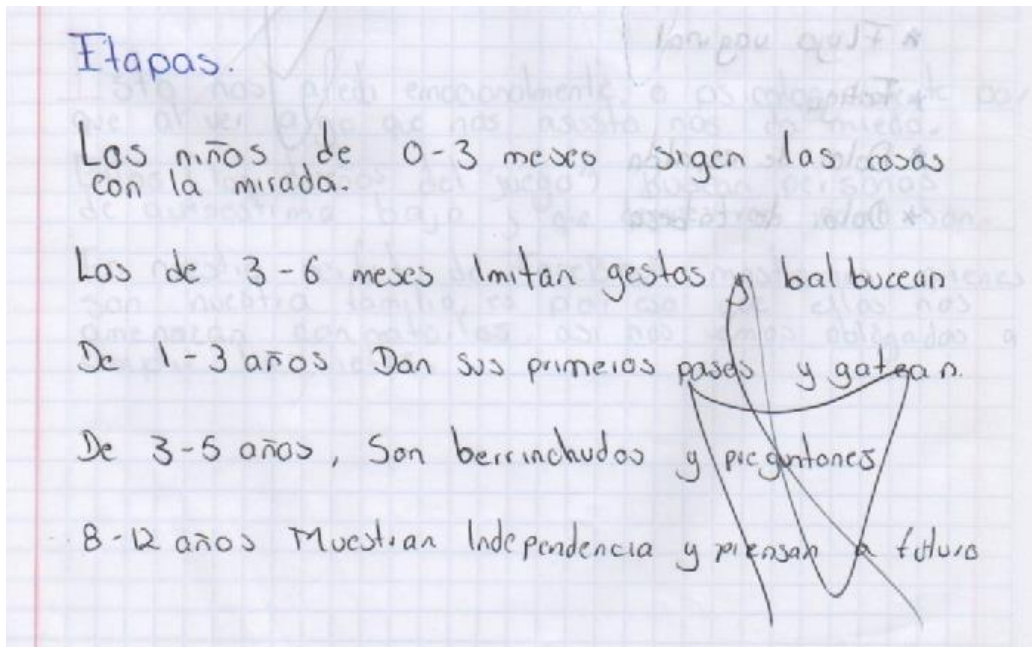 Etapas.
Los niños de 0-3 meses sigen las cosas
con la mirada.
Los de 3-6 meses Imitan gestos y balbucean
De 1-3 años Dan sus primeros pasos y gatean.
De 3-5 años, Son berrinchudos y preguntones
8-12 años Muestran Independencia y piensan a futuro